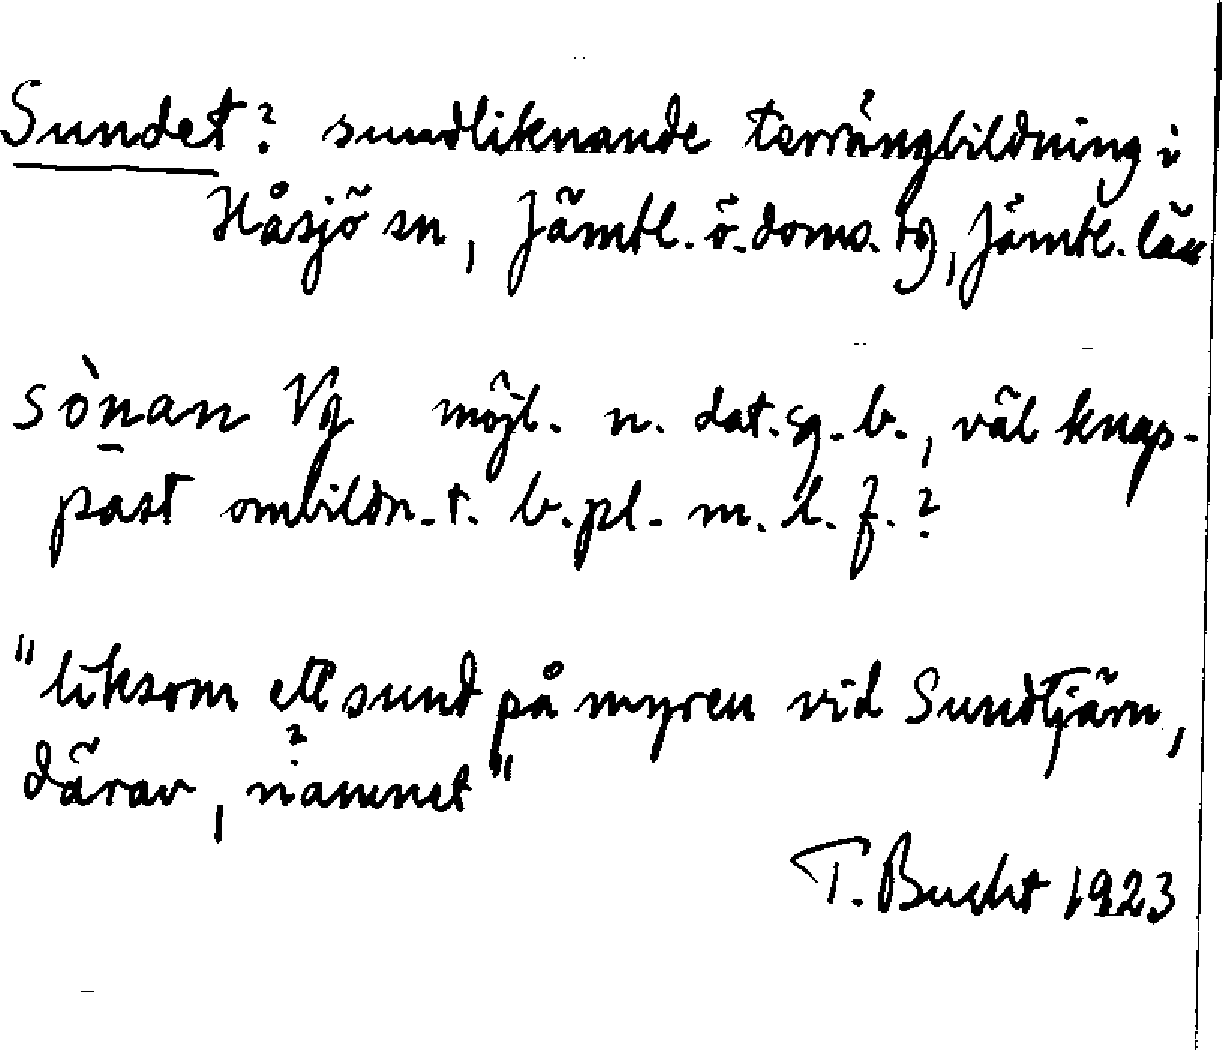 Sundet? sundliknande terrängbildning i
Håsjö sn, Jämtl. ö. doms. tg, Jämtl. län
sò̱nan Vg möjl. n. dat. sg. b., väl knap-
past ombildn. t. b. pl. m. l. f.?
"liksom ett sund på myren vid Sundtjärn,
därav, namnet"
?
T. Bucht 1923